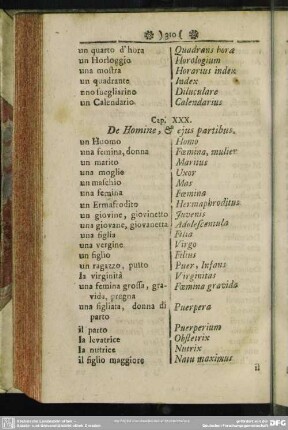 )310(
un quarto d'hora Quadrans hora
un Horloggio Horologium
una mostra Horarius index
un quadrante Index
uno suegliarino Diluculare
un Calendario. Calendarius
Cap. XXX.
De Homine, & ejus partibus.
un Huomo Homo
una femina, donna Fœmina, mulier
un marito Maritus
una moglie Uxor
un maschio Mas
una femina Fœmina
un Ermafrodito Hermaphroditus
un giovine, giovinetto Juvenis
una giovane, giovanetta Adolescentula
una figlia Filia
una vergine Virgo
un figlio Filius
un ragazzo, putto Puer, Infans
la virginità Virginitas
una femina grossa, gra- Fœmina gravida
vida, pregna
una figliata, donna di Puerpera
parto
il parto Puerperium
la levatrice Obstetrix
la nutrice Nutrix
il figlio maggiore Natu maximus
il